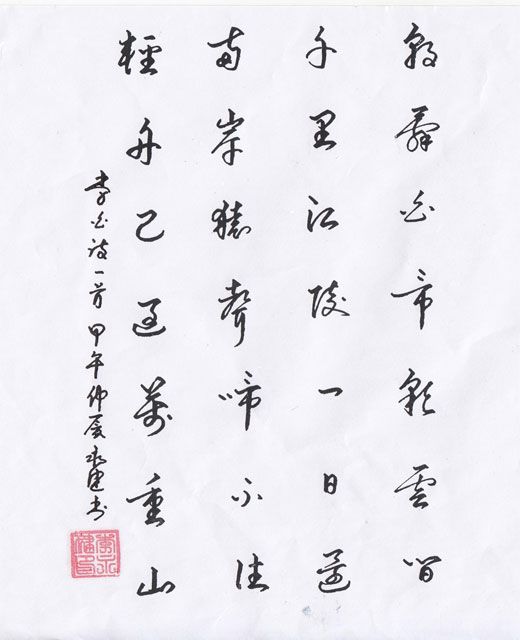 朝辭白帝彩雲間
千里江陵一日還
兩岸猿聲啼不住
輕舟已過萬重山
李白詩一首 甲午仲夏 永健書
李永健印